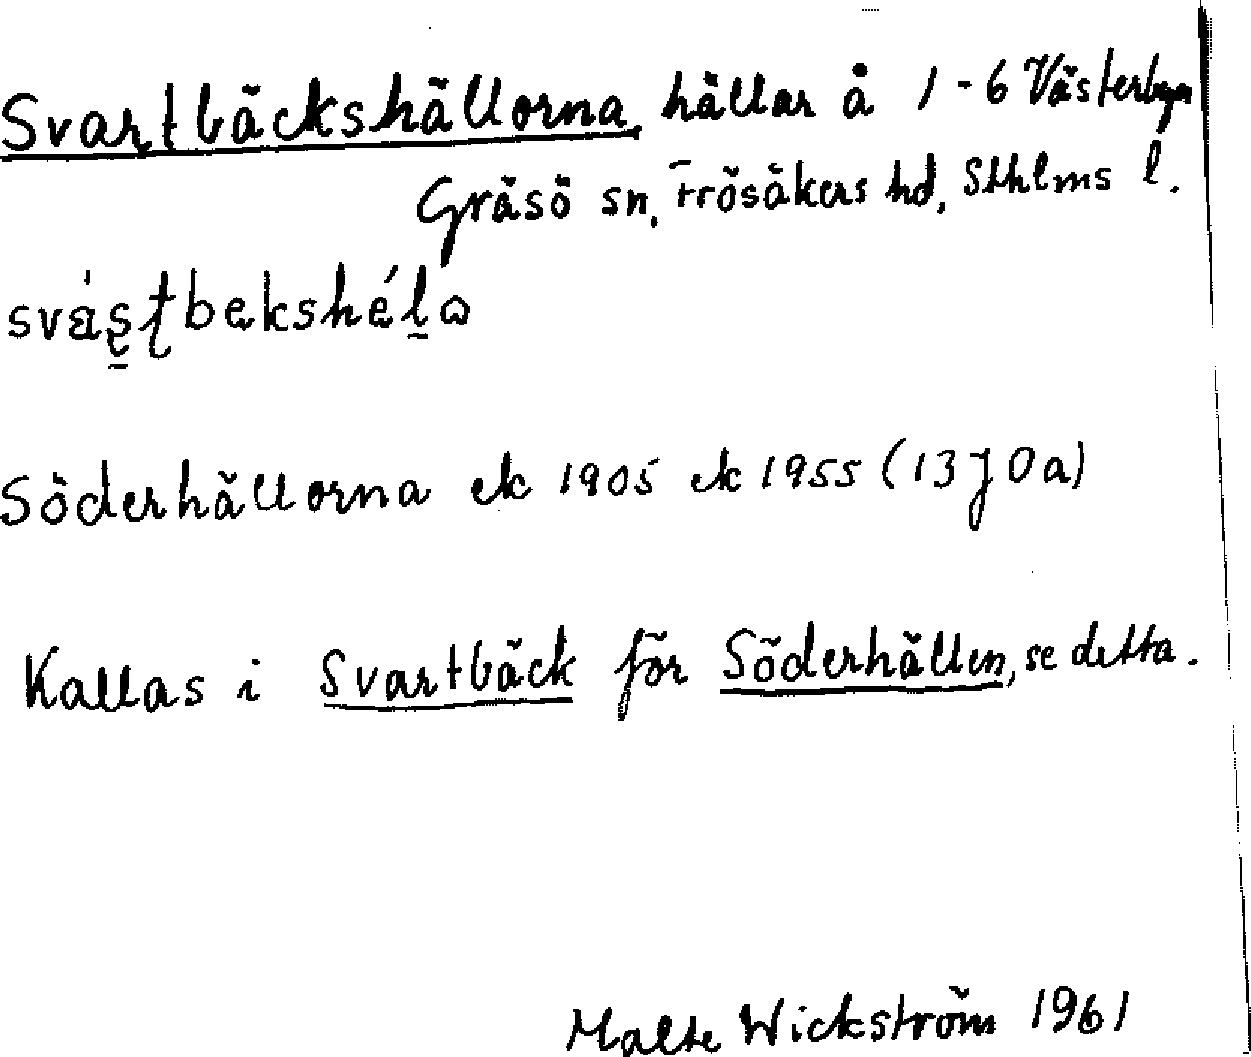 Svartbäckshällorna, hällar å 1-6 Västerbyn
Gräsö sn, Frösåkers hd, Sthlms l.
Söderhällorna ek 1905 ek 1955 (13J0a)
Kallas i Svartbäck för Söderhällen, se detta.
Malte Wickström 1961